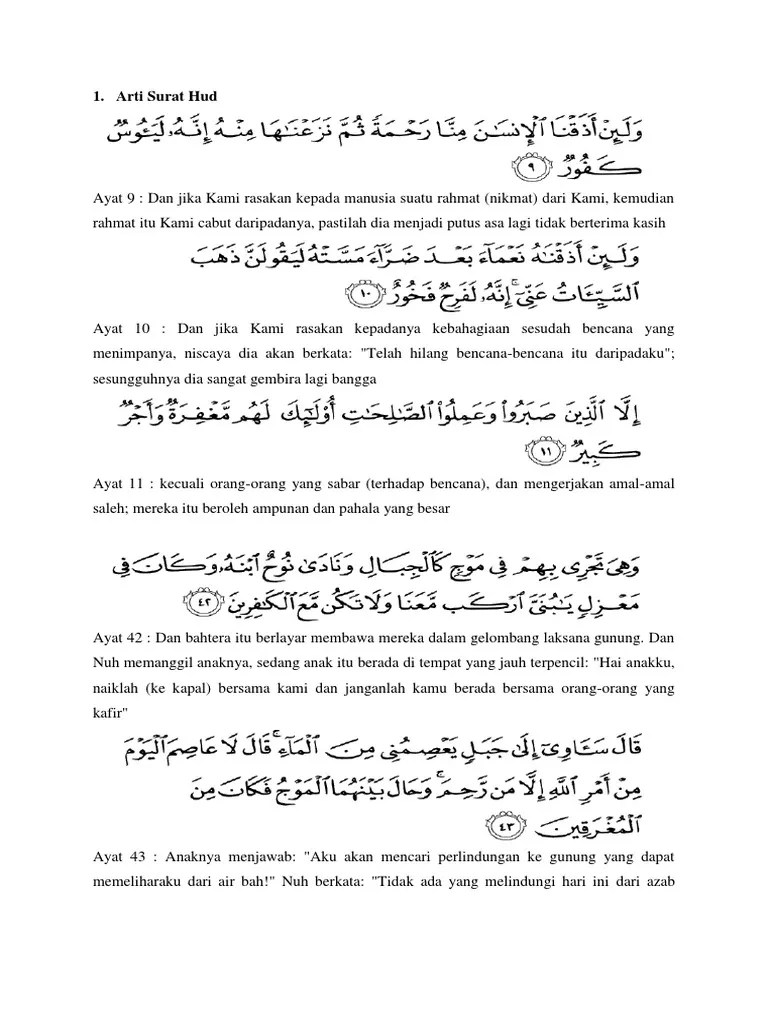 1. Arti Surat Hud
وَلَئِنْ أَذَقْنَا ٱلْإِنسَـٰنَ مِنَّا رَحْمَةً ثُمَّ نَزَعْنَـٰهَا مِنْهُ إِنَّهُۥ لَيَـُٔوسٌ
كَفُورٌ ٩
Ayat 9 : Dan jika Kami rasakan kepada manusia suatu rahmat (nikmat) dari Kami, kemudian
rahmat itu Kami cabut daripadanya, pastilah dia menjadi putus asa lagi tidak berterima kasih
وَلَئِنْ أَذَقْنَـٰهُ نَعْمَآءَ بَعْدَ ضَرَّآءَ مَسَّتْهُ لَيَقُولَنَّ ذَهَبَ
ٱلسَّيِّـَٔاتُ عَنِّىٓ ۚ إِنَّهُۥ لَفَرِحٌ فَخُورٌ ١٠
Ayat 10 : Dan jika Kami rasakan kepadanya kebahagiaan sesudah bencana yang
menimpanya, niscaya dia akan berkata: "Telah hilang bencana-bencana itu daripadaku";
sesungguhnya dia sangat gembira lagi bangga
إِلَّا ٱلَّذِينَ صَبَرُوا۟ وَعَمِلُوا۟ ٱلصَّـٰلِحَـٰتِ أُو۟لَـٰٓئِكَ لَهُم مَّغْفِرَةٌ وَأَجْرٌ
كَبِيرٌ ١١
Ayat 11 : kecuali orang-orang yang sabar (terhadap bencana), dan mengerjakan amal-amal
saleh; mereka itu beroleh ampunan dan pahala yang besar
وَهِىَ تَجْرِى بِهِمْ فِى مَوْجٍ كَٱلْجِبَالِ وَنَادَىٰ نُوحٌ ٱبْنَهُۥ وَكَانَ فِى
مَعْزِلٍ يَـٰبُنَىَّ ٱرْكَب مَّعَنَا وَلَا تَكُن مَّعَ ٱلْكَـٰفِرِينَ ٤٢
Ayat 42 : Dan bahtera itu berlayar membawa mereka dalam gelombang laksana gunung. Dan
Nuh memanggil anaknya, sedang anak itu berada di tempat yang jauh terpencil: "Hai anakku,
naiklah (ke kapal) bersama kami dan janganlah kamu berada bersama orang-orang yang
kafir"
قَالَ سَـَٔاوِىٓ إِلَىٰ جَبَلٍ يَعْصِمُنِى مِنَ ٱلْمَآءِ ۚ قَالَ لَا عَاصِمَ ٱلْيَوْمَ
مِنْ أَمْرِ ٱللَّهِ إِلَّا مَن رَّحِمَ ۚ وَحَالَ بَيْنَهُمَا ٱلْمَوْجُ فَكَانَ مِنَ
ٱلْمُغْرَقِينَ ٤٣
Ayat 43 : Anaknya menjawab: "Aku akan mencari perlindungan ke gunung yang dapat
memeliharaku dari air bah!" Nuh berkata: "Tidak ada yang melindungi hari ini dari azab